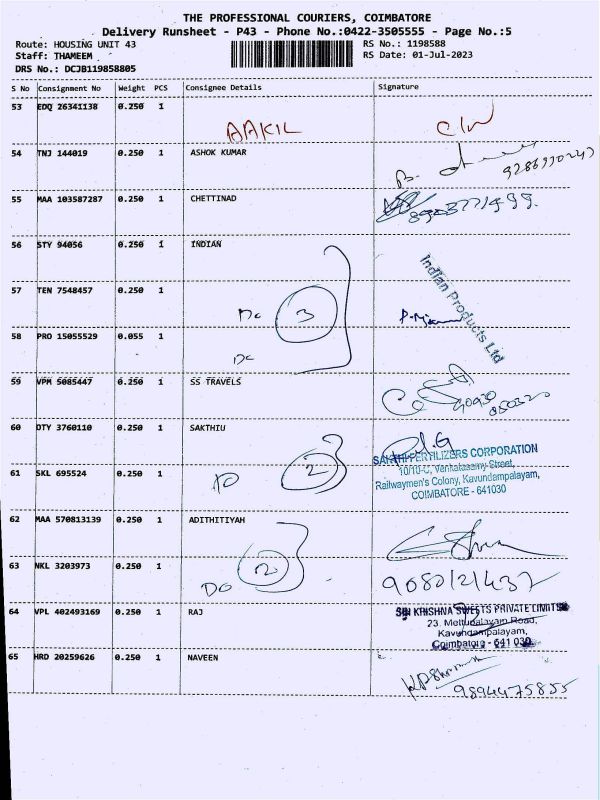 THE PROFESSIONAL COURIERS, COIMBATORE
Delivery Runsheet - P43 - Phone No.:0422-3505555 - Page No.:5
Route: HOUSING UNIT 43 RS No.: 1198588
Staff: THAMEEM . RS Date: 01-Jul-2023
DRS No.: DCJB119858805
S No Consignment No Weight PCS Consignee Details Signature
53 EDQ 26341138 0.250 1
AAKIL
54 TNJ 144019 0.250 1 ASHOK KUMAR
55 MAA 103587287 0.250 1 CHETTINAD
8903771499.
56 STY 94056 0.250 1 INDIAN
Indian Products Ltd
57 TEN 7548457 0.250 1
Dc 3
58 PRO 15055529 0.055 1
Dc
59 VPM 5085447 0.250 1 SS TRAVELS
60 DTY 3760110 0.250 1 SAKTHIU
SAKTHI FERTILIZERS CORPORATION
10/10-C, Venkatasamy Street,
61 SKL 695524 0.250 1
2
Railwaymen's Colony, Kavundampalayam,
COIMBATORE - 641030
62 MAA 570813139 0.250 1 ADITHITIYAH
63 NKL 3203973 0.250 1
2
Dc 9080121437
64 VPL 402493169 0.250 1 RAJ
SRI KRISHNA SWEETS PRIVATE LIMITED
23. Mettupalayam Road,
Kavundampalayam,
Coimbatore - 641 030
65 HRD 20259626 0.250 1 NAVEEN
9894475855